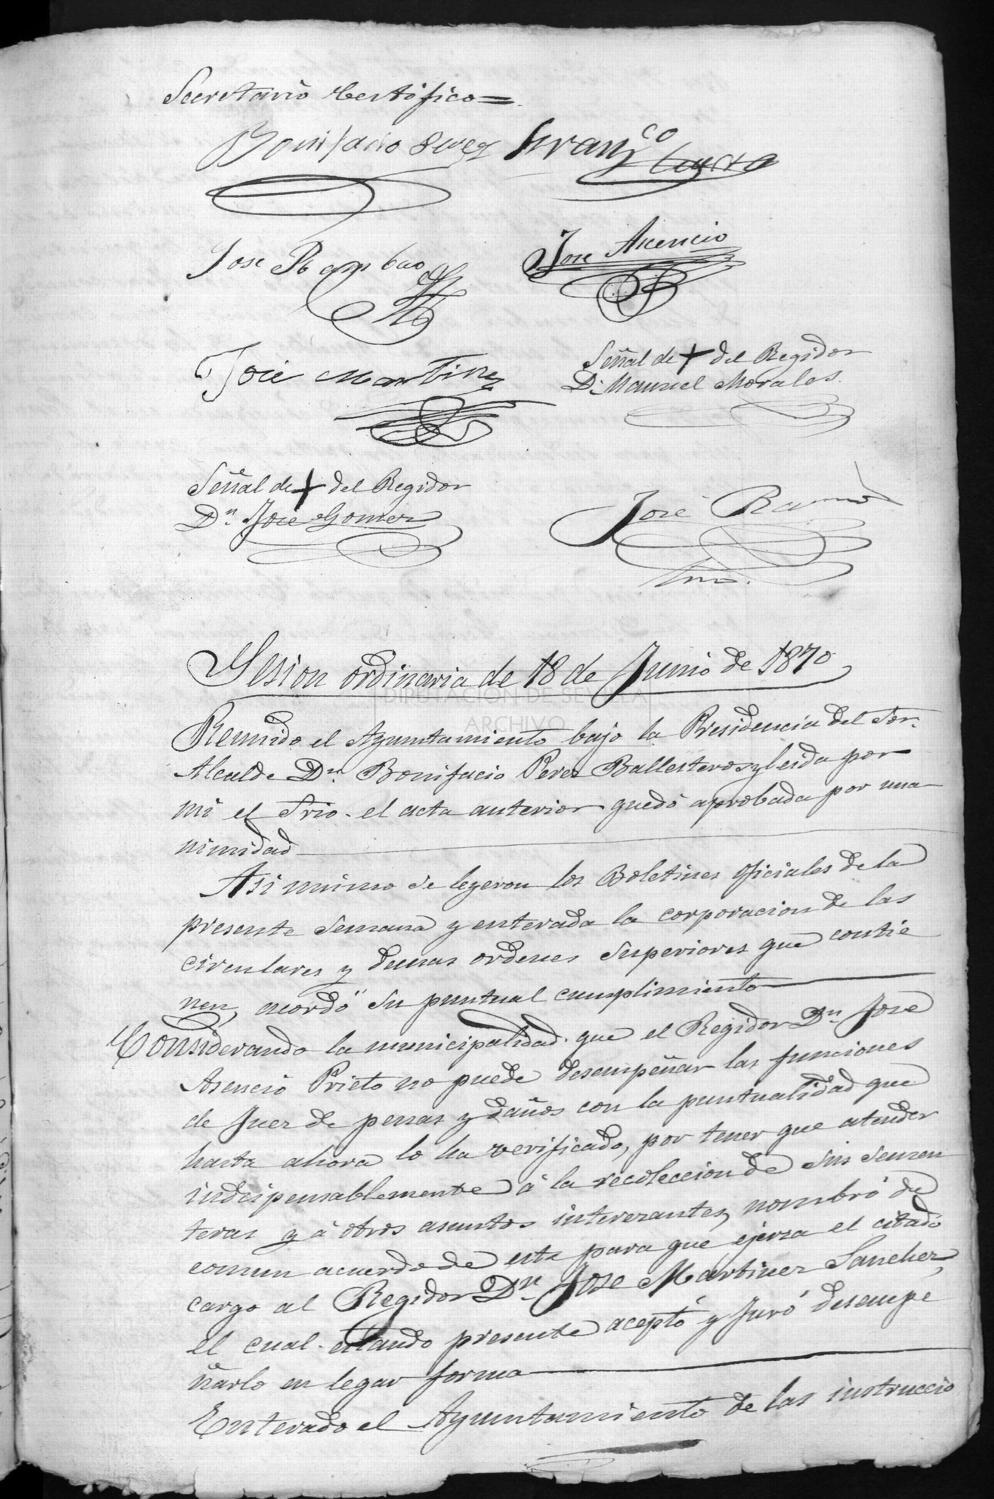 Secretario Certifico=
Bonifacio Perez Fran.co
Jose Rambao Jose Asencio
Jose Martinez
Señal de + del Regidor
D.n Manuel Morales.
Señal de + del Regidor
D.n Jose Gomez
Jose Ramo
Srio.
Sesion ordinaria de 18 de Junio de 1870
DIPUTACION DE SEVILLA
ARCHIVO
Reunido el Ayuntamiento bajo la Presidencia del Sor.
Alcalde D.n Bonifacio Perez Ballesteros y leida por
mi el Srio. el acta anterior quedó aprobada por una
nimidad
Asi mismo se leyeron los Boletines oficiales de la
presente semana y enterada la corporacion de las
circulares y demas ordenes superiores que contie
nen, acordó su puntual cumplimiento
Considerando la municipalidad que el Regidor D.n Jose
Asencio Prieto no puede desempeñar las funciones
de Juez de penas y daños con la puntualidad que
hasta ahora lo ha verificado, por tener que atender
indispensablemente á la recoleccion de sus semen
teras y á otros asuntos interezantes, nombró de
comun acuerdo de este para que ejerza el citado
cargo al Regidor D.n Jose Martinez Sanchez,
el cual estando presente aceptó y juró desempe
ñarlo en legar forma
Enterado el Ayuntamiento de las instruccio